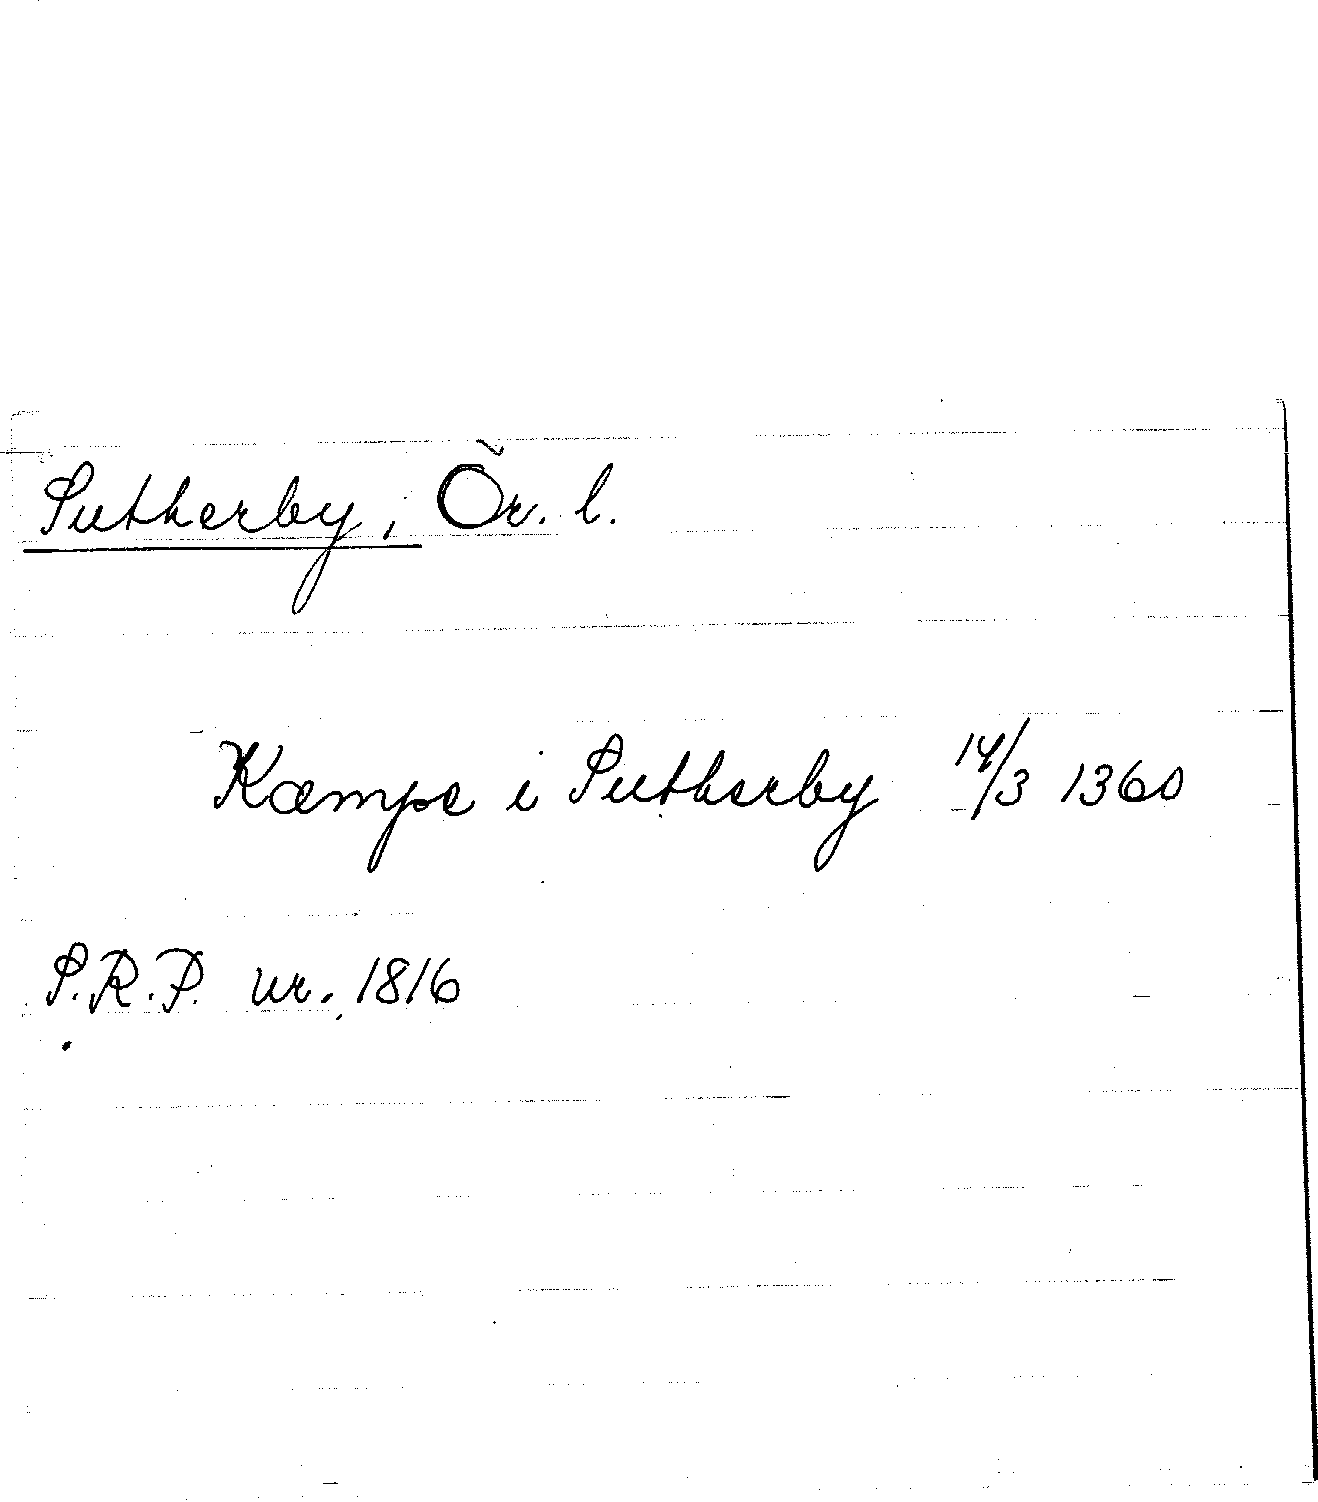 Sutherby, Ör. l.
Kæmpe i Sutherby 14/3 1360
S.R.P. nr. 1816